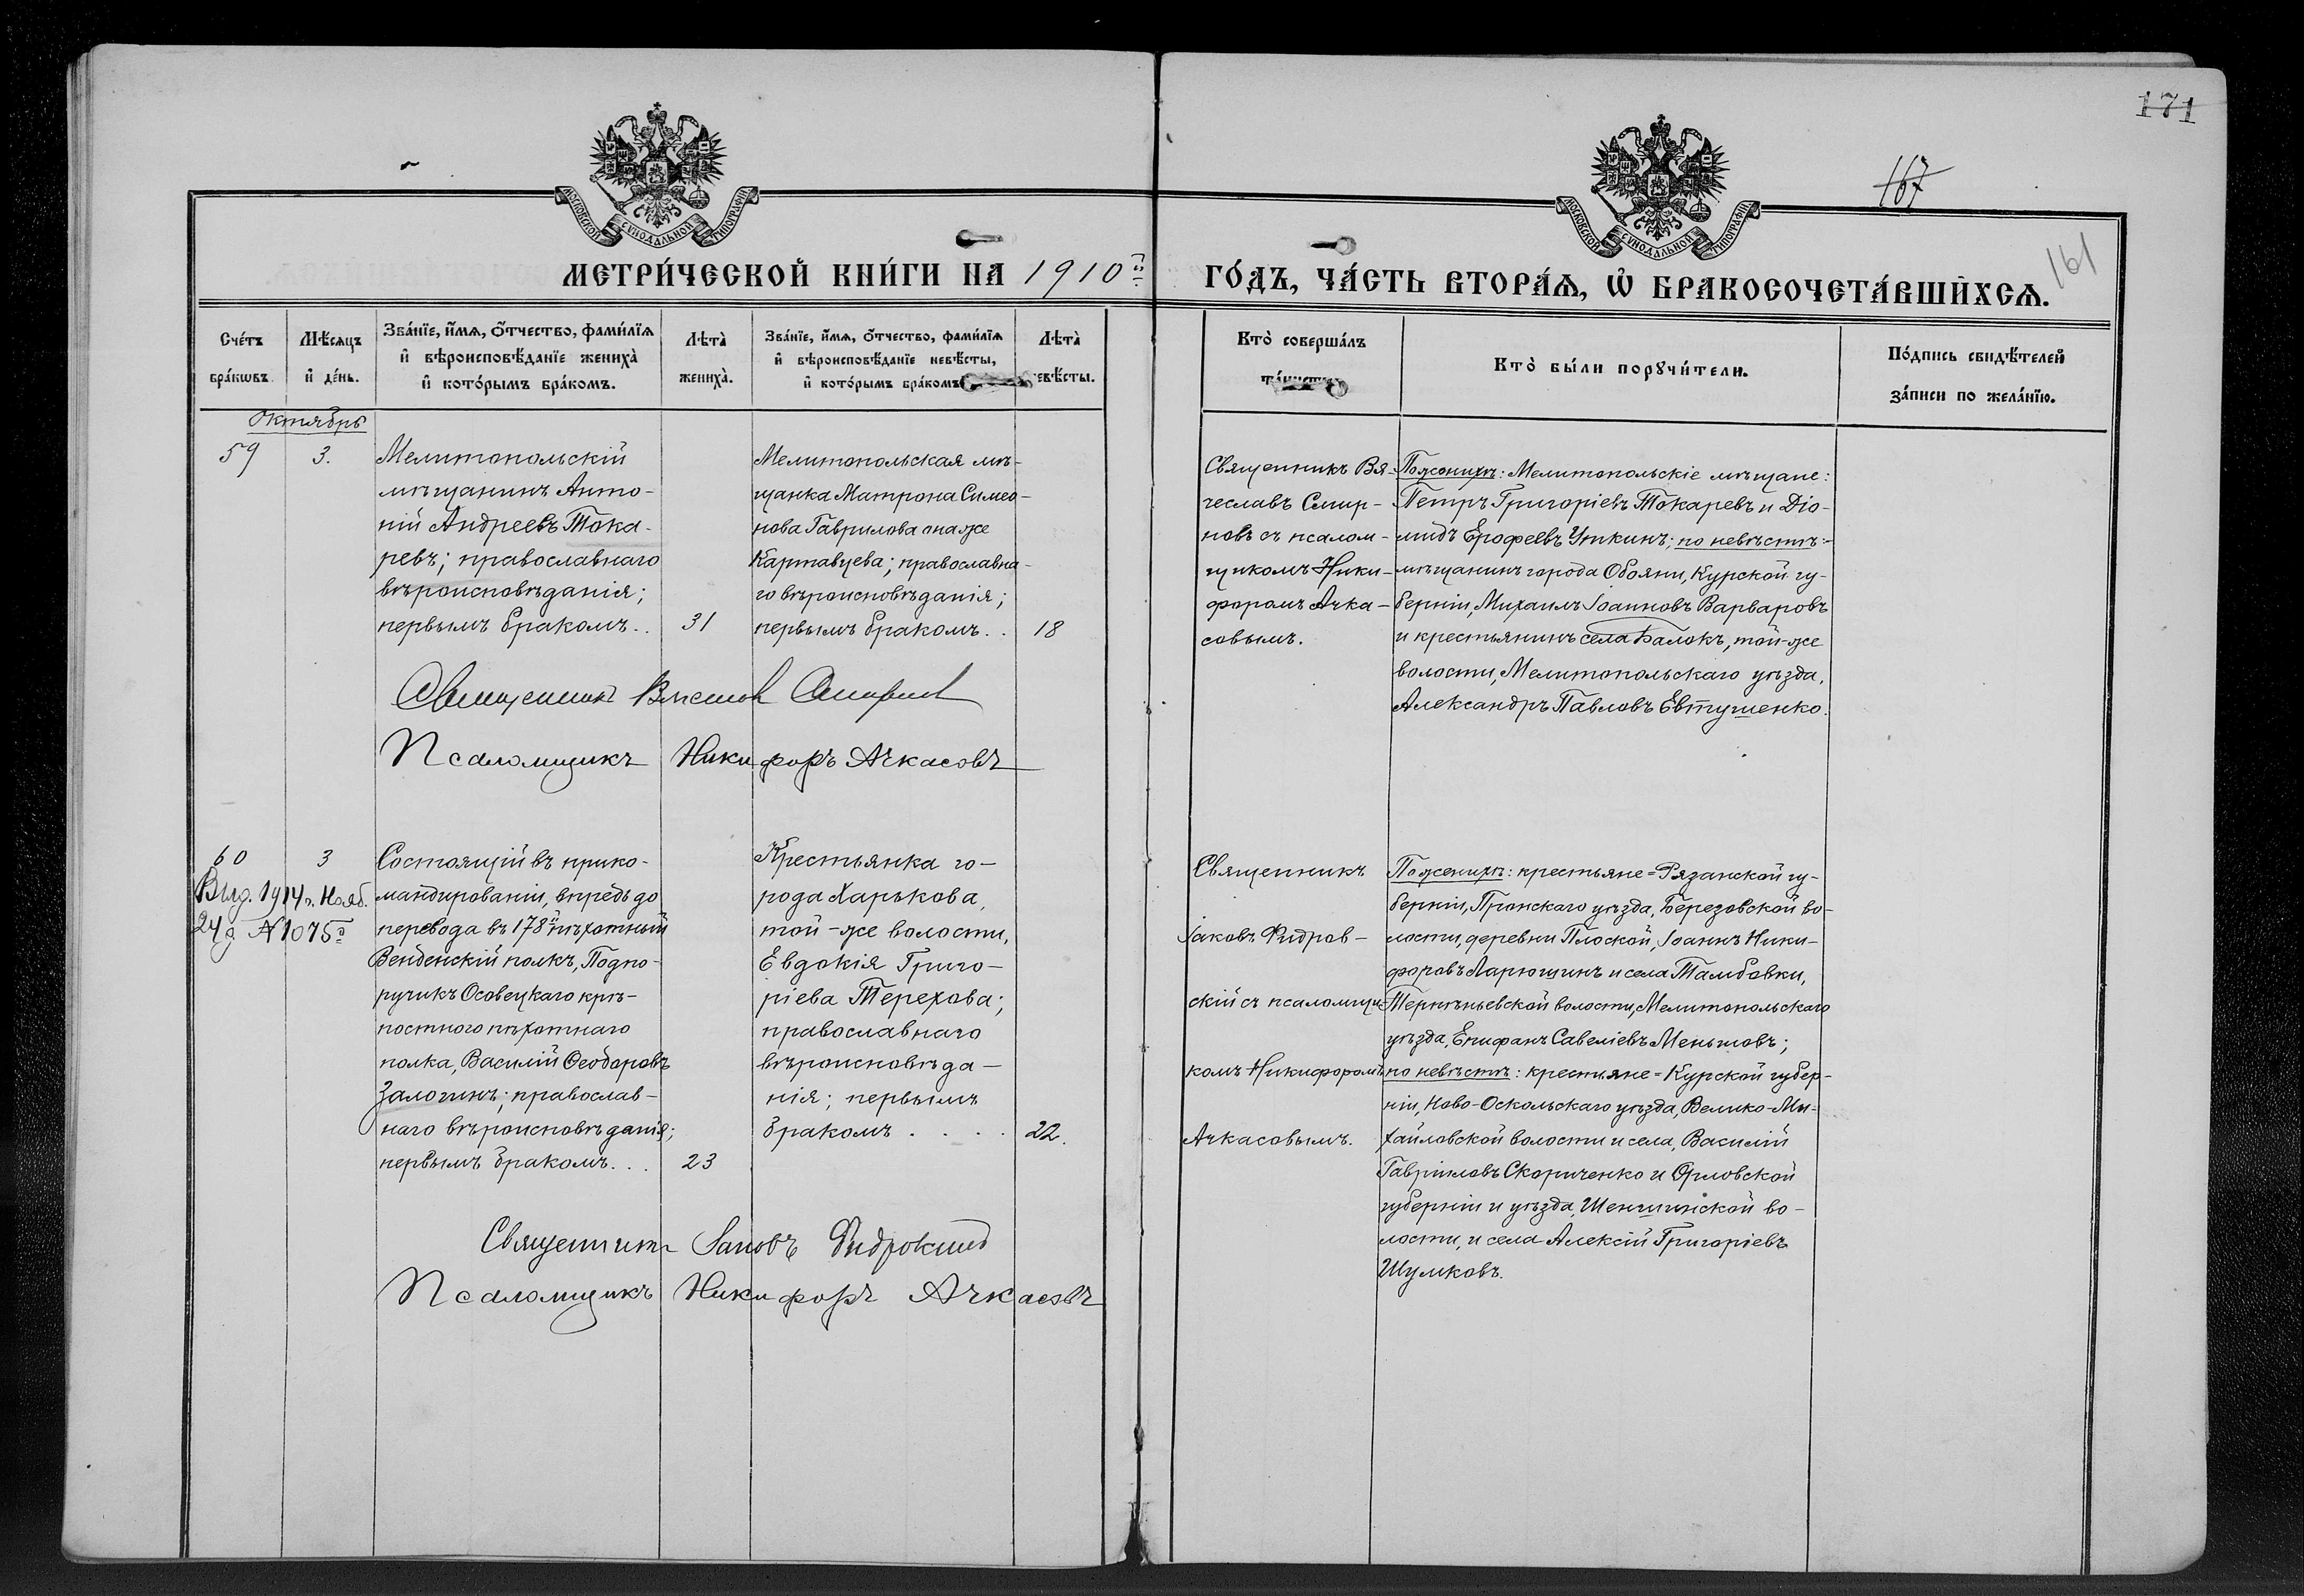 171
167
161
МОСКОВСКОЙ СѴНОДАЛЬНОЙ ТИПОГРАФІИ
МОСКОВСКОЙ СѴНОДАЛЬНОЙ ТИПОГРАФІИ
МЕТРИ́ЧЕСКОЙ КНИ́ГИ НА 1910й
ГО́ДЪ, ЧА́СТЬ ВТОРА́Ѧ, Ѡ БРАКОСОЧЕТА́ВШИХСѦ.
Сче́тъ бра́кѡвъ
Мѣ́сѧцъ и де́нь.
Зва́нїе, и́мѧ, о́тчество, фами́лїѧ и вѣроисповѣ́данїе жениха̀ и кото́рымъ бра́комъ.
Лѣ́та̀ жениха̀.
Зва́нїе, и́мѧ, о́тчество, фами́лїѧ и вѣроисповѣ́данїе невѣ́сты, и кото́рымъ бра́комъ
Лѣ́та̀ евѣ́сты.
Кто̀ соверша́лъ
Кто̀ бы́ли порꙋчи́тели.
По́дпись свидѣ́телей за́писи по жела́нїю.
Октябрь
59
3.
Мелитопольскій
мѣщанинъ Анто-
ній Андреевъ Тока-
ревъ; православнаго
вѣроисповѣданія;
первымъ бракомъ..
31
Мелитопольская мѣ-
щанка Матрона Симео-
нова Гаврилова она же
Картавцева; православна-
го вѣроисповѣданія;
первымъ бракомъ..
18
Священникъ Вя-
чеславъ Смир-
новъ съ псалом-
щикомъ Ники-
форомъ Ачка-
совымъ.
По женихѣ: Мелитопольскіе мѣщане:
Петръ Григоріевъ Токаревъ и Діо-
мидъ Ерофеевъ Уткинъ; по невѣстѣ:-
мѣщанинъ города Обояни, Курской гу-
берніи, Михаилъ Іоанновъ Варваровъ
и крестьянинъ села Балокъ, той-же
волости, Мелитопольскаго уѣзда,
Александръ Павловъ Евтушенко.
Священникъ Смирновъ
Псаломщикъ Никифоръ Ачкасовъ
60
3
Выд. 1914 г. Нояб.
24 д № 1075
Состоящій въ прико-
мандированіи, впредь до
перевода въ 178й пѣхотный
Венденскій полкъ, Подпо-
ручикъ Осовецкаго крѣ-
постного пѣхотнаго
полка, Василій Ѳеодоровъ
Залогинъ; православ-
наго вѣроисповѣданія;
первымъ бракомъ...
23
Крестьянка го-
рода Харькова,
той-же волости,
Евдокія Григо-
ріева Терехова;
православнаго
вѣроисповѣда-
нія; первымъ
бракомъ....
22.
Священникъ
Іаковъ Фидров-
скій съ псаломщи-
комъ Никифоромъ
Ачкасовымъ.
По женихѣ: крестьяне=Рязанской гу-
берніи, Пронскаго уѣзда, Березовской во-
лости, деревни Плоской, Іоаннъ Ники-
форовъ Ларюшинъ и села Тамбовки,
Терпѣньевской волости, Мелитопольскаго
уѣзда, Епифанъ Савеліевъ Меньшовъ;
по невѣстѣ: крестьяне=Курской губер-
ніи, Ново-Оскольскаго уѣзда, Велико-Ми-
хайловской волости и села, Василій
Гавріиловъ Скориченко и Орловской
губерніи и уѣзда, Шеншинской во-
лости, и села Алексій Григоріевъ
Шумковъ.
Священникъ Іаковъ Фидровскій
Псаломщикъ Никифоръ Ачкасовъ